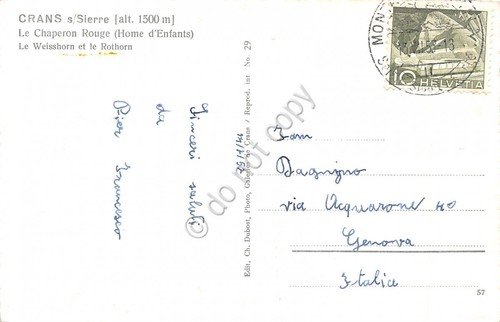 CRANS s/Sierre [alt. 1500 m]
Le Chaperon Rouge (Home d'Enfants)
Le Weisshorn et le Rothorn
Sinceri saluti
da
Pier Francesco
Edit. Ch. Dubost, Photo, Galeries de Crans / Reprod. int. No. 29
do not copy
MON
10 HELVETIA
Fam
Dagnino
via Acquarone 40
Genova
Italia
57